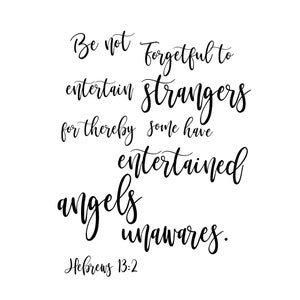 Be not Forgetful to
entertain strangers
for thereby some have
entertained
angels
unawares.
Hebrews 13:2